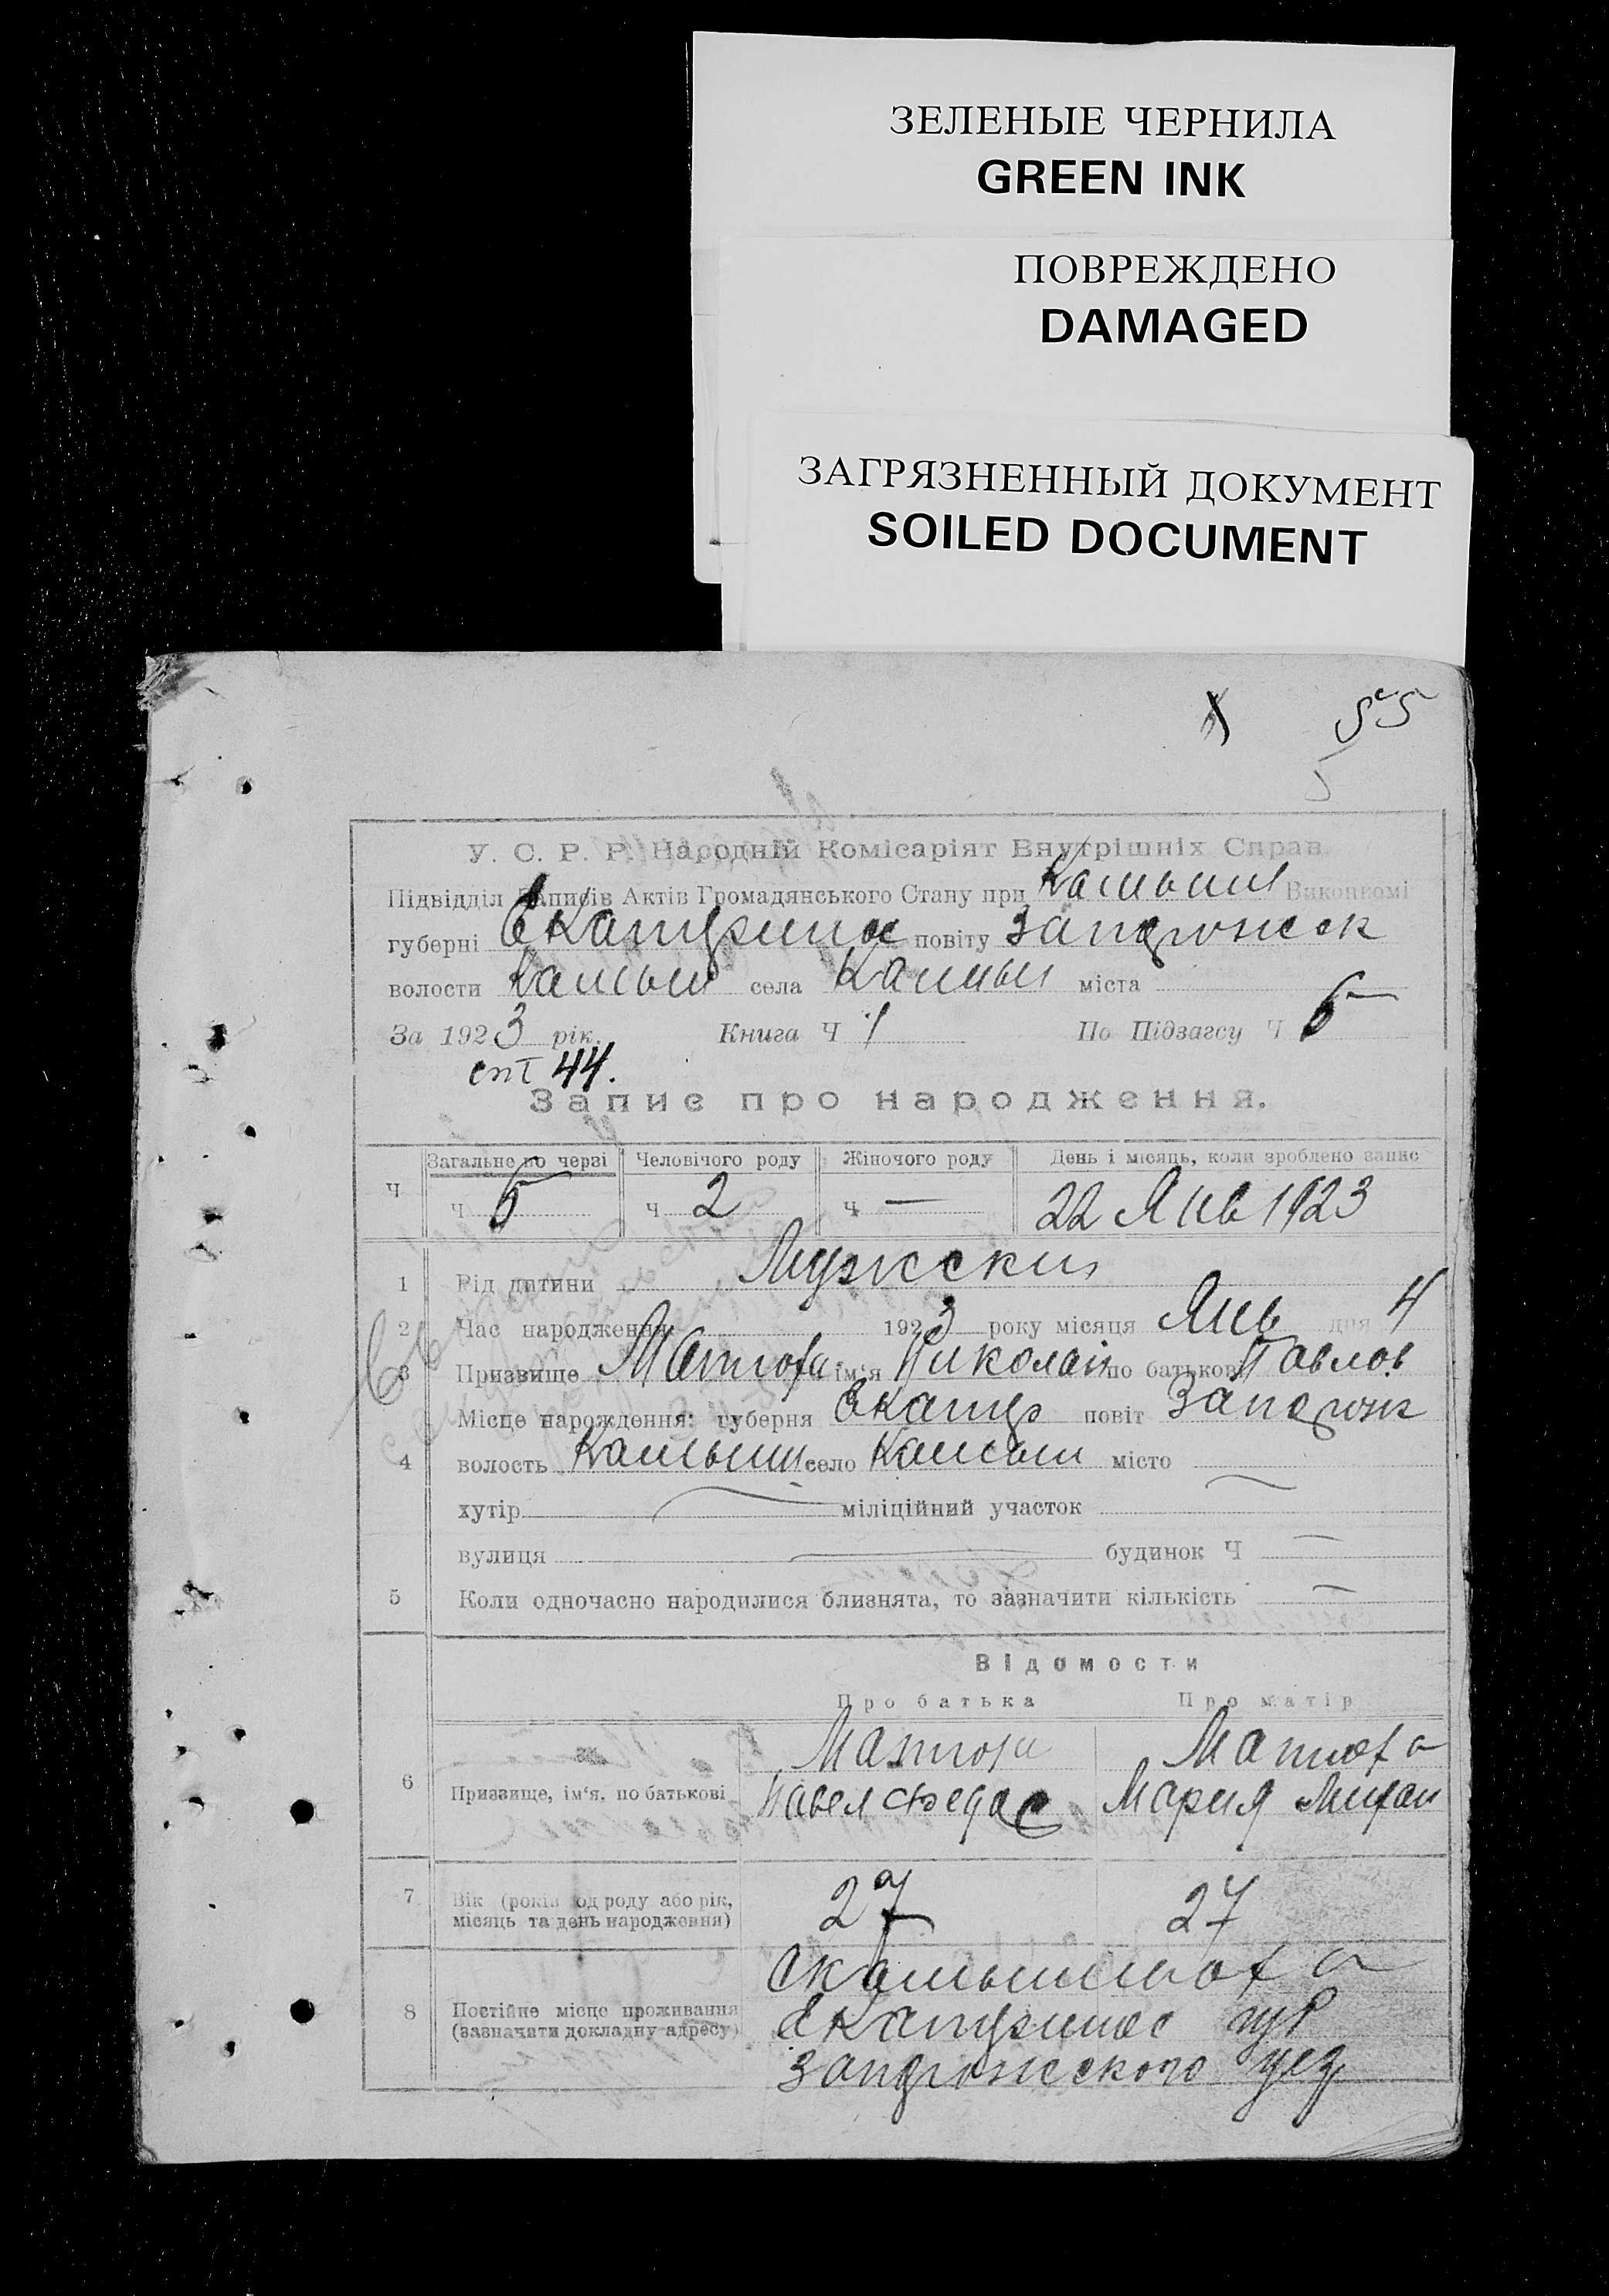 ЗЕЛЕНЫЕ ЧЕРНИЛА
GREEN INK
ПОВРЕЖДЕНО
DAMAGED
ЗАГРЯЗНЕННЫЙ ДОКУМЕНТ
SOILED DOCUMENT
55
5
У. С. Р. Р. Народній Комісаріят Внутрішніх Справ
Підвідділ Записів Актів Громадянського Стану при Камыш Виконкомі
губерні Екатерин повіту Запорожск
волости Камыш села Камыш міста
За 1923 рік. Книга Ч 1 По Підзагсу Ч 5
ст 44.
Запис про народження.
Ч Загальне по черзі Человічого роду Жіночого роду День і місяць, коли зроблено запис
ч 5 ч 2 ч — 22 Янв 1923
1 Рід дитини Мужески
2 Час народження: 1923 року місяця Янв дня 4
3 Призвище ім'я Николай по батькові Павлов
Місце народження: губерня Екатер повіт Запорож
4 волость Камыш село Камыш місто
хутір міліційний участок
вулиця будинок Ч —
5 Коли одночасно народилися близнята, то зазначити кількість —
Відомости
Про батька Про матір
6 Призвище, ім'я, по батькові Павел Федос Мария Михай
7 Вік (років од роду або рік, місяць та день народження) 27 27
8 Постійне місце проживання
(зазначити докладну адресу) Екатеринос губ
Запорожского уез